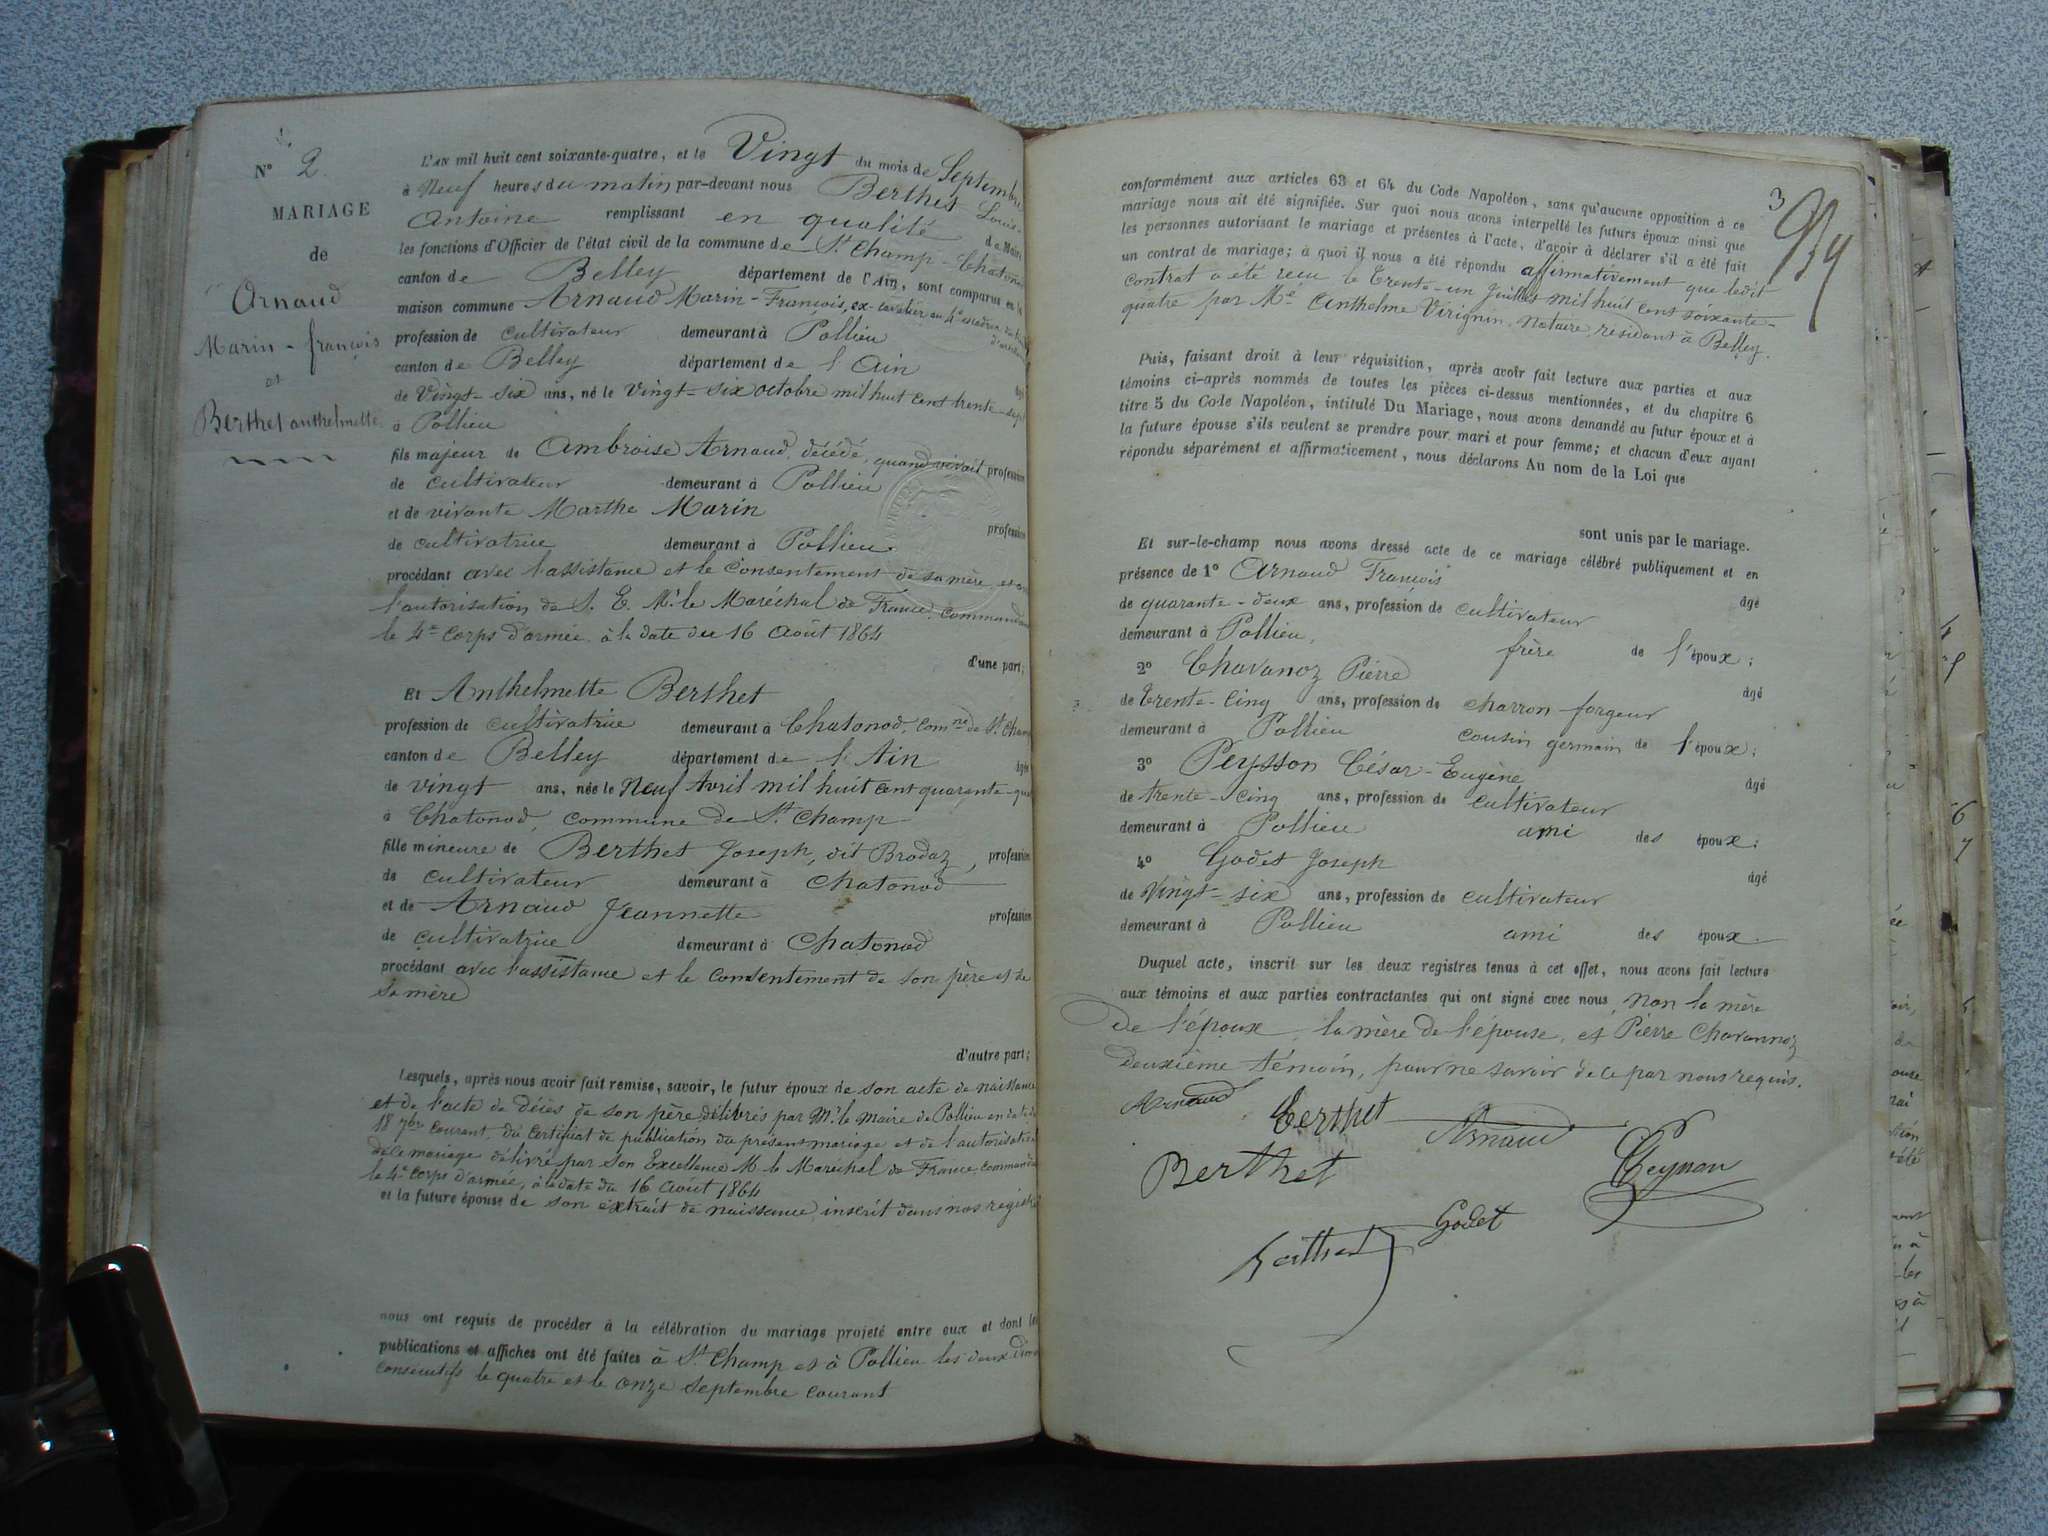 N° 2.
MARIAGE
de
Arnaud
Marin-françois
et
Berthet anthelmette
L'AN mil huit cent soixante-quatre, et le Vingt du mois de Septembre
à Neuf heures du matin par-devant nous Berthet Louis-
Antoine remplissant en qualité de Maire
les fonctions d'Officier de l'état civil de la commune de St Champ-Chatonod
canton de Belley département de l'Ain, sont comparus en la
maison commune Arnaud Marin-François, ex-cavalier au 4e escadron
profession de cultivateur demeurant à Pollieu
canton de Belley département de l'Ain âgé
de Vingt-six ans, né le Vingt-six octobre mil huit cent trente-sept
à Pollieu
fils majeur de Ambroise Arnaud, décédé, quand vivait profession
de cultivateur demeurant à Pollieu
et de vivante Marthe Marin profession
de cultivatrice demeurant à Pollieu
procédant avec l'assistance et le consentement de sa mère et
l'autorisation de S. E. Mr le Maréchal de France, commandant
le 4e corps d'armée à la date du 16 Août 1864
d'une part;
Et Anthelmette Berthet
profession de cultivatrice demeurant à Chatonod, comne de St Champ
canton de Belley département de l'Ain âgée
de vingt ans, née le Neuf Avril mil huit cent quarante-qua
à Chatonod, commune de St Champ
fille mineure de Berthet Joseph, dit Brodaz, profession
de cultivateur demeurant à Chatonod
et de Arnaud Jeannette profession
de cultivatrice demeurant à Chatonod
procédant avec l'assistance et le consentement de son père et de
sa mère
d'autre part;
Lesquels, après nous avoir fait remise, savoir, le futur époux de son acte de naissance
et de l'acte de décès de son père délivrés par Mr le Maire de Pollieu en date du
18 7bre courant, du certificat de publication du présent mariage et de l'autorisation
de ce mariage délivré par Son Excellence M. le Maréchal de France commandant
le 4e corps d'armée, à la date du 16 Août 1864
et la future épouse de son extrait de naissance inscrit dans nos registres
nous ont requis de procéder à la célébration du mariage projeté entre eux et dont les
publications et affiches ont été faites à St Champ et à Pollieu les deux dim
consécutifs le quatre et le onze septembre courant
conformément aux articles 63 et 64 du Code Napoléon, sans qu'aucune opposition à ce
mariage nous ait été signifiée. Sur quoi nous avons interpellé les futurs époux ainsi que
les personnes autorisant le mariage et présentes à l'acte, d'avoir à déclarer s'il a été fait
un contrat de mariage; à quoi il nous a été répondu affirmativement que ledit
contrat a été reçu le Trente-un Juillet mil huit cent soixante-
quatre par Me Anthelme Virignin, Notaire, résidant à Belley.
Puis, faisant droit à leur réquisition, après avoir fait lecture aux parties et aux
témoins ci-après nommés de toutes les pièces ci-dessus mentionnées, et du chapitre 6
titre 5 du Code Napoléon, intitulé Du Mariage, nous avons demandé au futur époux et à
la future épouse s'ils veulent se prendre pour mari et pour femme; et chacun d'eux ayant
répondu séparément et affirmativement, nous déclarons Au nom de la Loi que
sont unis par le mariage.
Et sur-le-champ nous avons dressé acte de ce mariage célébré publiquement et en
présence de 1° Arnaud François âgé
de quarante-deux ans, profession de cultivateur
demeurant à Pollieu, frère de l'époux;
2° Chavanoz Pierre âgé
de Trente-cinq ans, profession de charron-forgeur
demeurant à Pollieu cousin germain de l'époux;
3° Peysson César-Eugène âgé
de trente-cinq ans, profession de cultivateur
demeurant à Pollieu ami des époux;
4° Godet Joseph âgé
de Vingt-six ans, profession de cultivateur
demeurant à Pollieu ami des époux.
Duquel acte, inscrit sur les deux registres tenus à cet effet, nous avons fait lecture
aux témoins et aux parties contractantes qui ont signé avec nous, Non la mère
de l'époux, la mère de l'épouse, et Pierre Chavannoz
deuxième témoin, pour ne savoir de ce par nous requis.
Arnaud Berthet Arnaud
Berthet Peysson
Godet
Berthet